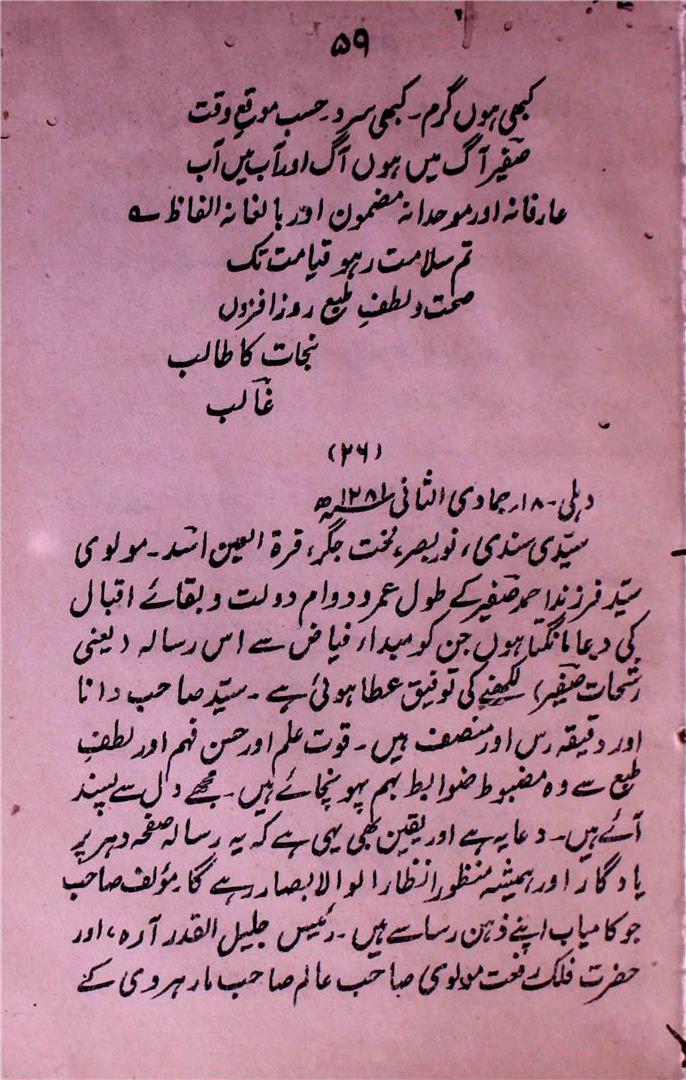 ۵۹
کبھی ہوں گرم۔ کبھی سرد۔ حسب موقع وقت
صفیر آگ میں ہوں آگ اور آب میں آب
عارفانہ اور موحدانہ مضمون اور بالغانہ الفاظ ے
تم سلامت رہو قیامت تک
صحت و لطفِ طبع روز افزوں
نجات کا طالب
غالب
(۲۶)
دہلی۔ ۱۸؍ جمادی الثانی ۱۲۸۱ھ
سیّدی سندی، نور بصر، لخت جگر، قرۃ العین اسد۔ مولوی
سیّد فرزند احمد صفیر کے طول عمر و دوام دولت و بقائے اقبال
کی دعا مانگتا ہوں جن کو مبداء فیاض سے اس رسالہ (یعنی
رشحات صفیر) لکھنے کی توفیق عطا ہوئی ہے۔ سیّد صاحب دانا
اور دقیقہ رس اور منصف ہیں۔ قوت علم اور حسن فہم اور لطفِ
طبع سے وہ مضبوط ضوابط بہم پہونچائے ہیں۔ مجھے دل سے پسند
آئے ہیں۔ دعا یہ ہے اور یقین بھی یہی ہے کہ یہ رسالہ صفحہ دہر پر
یادگار اور ہمیشہ منظور انظار الوالابصار رہے گا۔ مؤلف صاحب
جو کامیاب اپنے ذہن رسا سے ہیں۔ رئیس جلیل القدر آرہ، اور
حضرت فلک رفعت مولوی صاحب عالم صاحب مارہروی کے